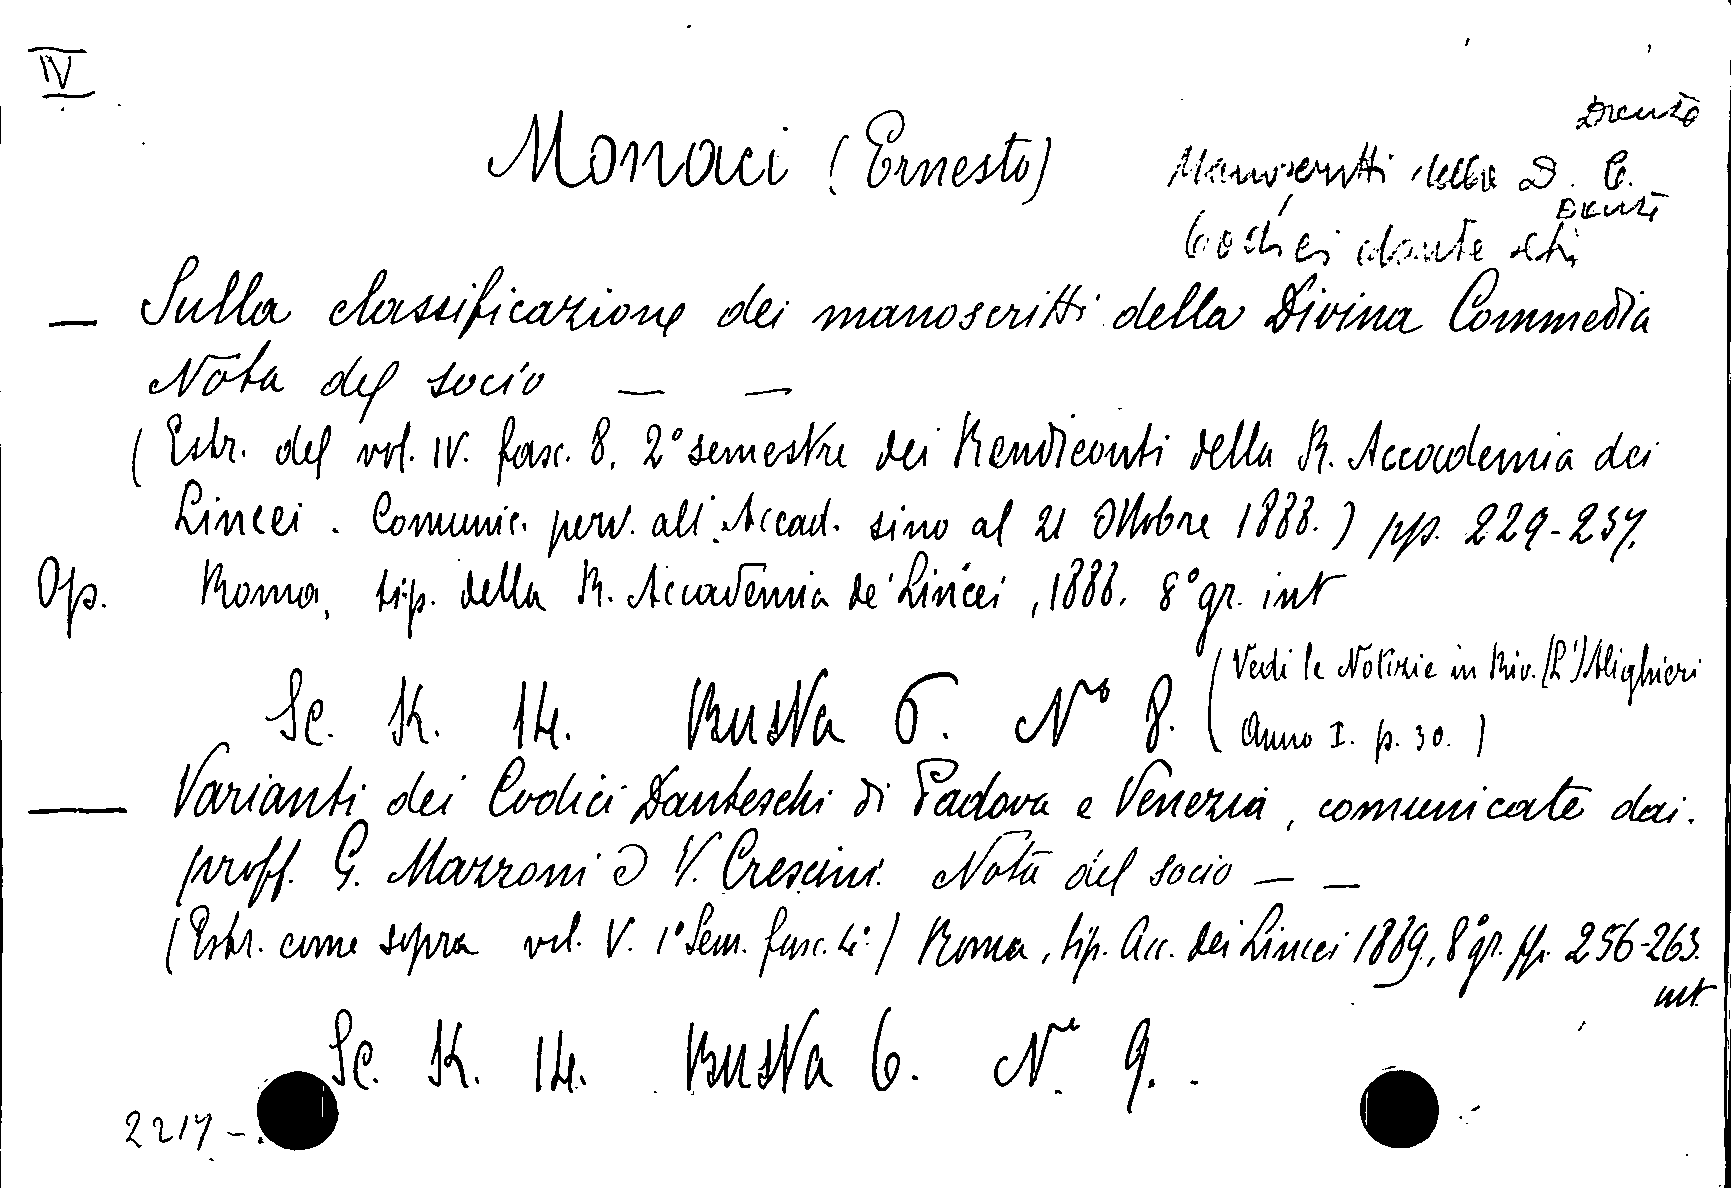 IV
Dante
Monaci (Ernesto)
Manoscritti della D. C.
Dante
Codici danteschi
— Sulla classificazione dei manoscritti della Divina Commedia
Nota del socio — —
(Estr. del vol. IV. fasc. 8. 2° semestre dei Rendiconti della R. Accademia dei
Lincei. Comunic. perv. all'Accad. sino al 21 Ottobre 1888.) pp. 229-237.
Op. Roma, tip. della R. Accademia de' Lincei, 1888. 8° gr. int
Sc. K. 14. Busta 6. N° 8. (Vedi le Notizie in Riv. (L') Alighieri
Anno I. p. 30.)
— Varianti dei Codici Danteschi di Padova e Venezia, comunicate dai.
proff. G. Mazzoni e V. Crescini. Nota del socio — —
(Estr. come sopra vol. V. 1° Sem. fasc. 4°.) Roma, tip. Acc. dei Lincei 1889, 8° gr. pp. 256-263.
int
Sc. K. 14. Busta 6. N. 9.
2217 -